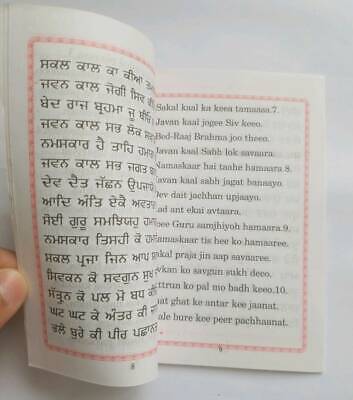 ਸਕਲ ਕਾਲ ਕਾ ਕੀਆ
ਜਵਨ ਕਾਲ ਜੋਗੀ ਸਿਵ ਕੀ
ਬੇਦ ਰਾਜ ਬ੍ਰਹਮਾ ਜੂ ਥੀ
ਜਵਨ ਕਾਲ ਸਭ ਲੋਕ ਸਵਾ
ਨਮਸਕਾਰ ਹੈ ਤਾਹਿ ਹਮਾ
ਜਵਨ ਕਾਲ ਸਭ ਜਗਤ ਬ
ਦੇਵ ਦੈਤ ਜੱਛਨ ਉਪਜਾ
ਆਦਿ ਅੰਤਿ ਏਕੈ ਅਵਤਾ
ਸੋਈ ਗੁਰੂ ਸਮਝਿਯਹੁ ਹਮਾ
ਨਮਸਕਾਰ ਤਿਸਹੀ ਕੋ ਹਮਾ
ਸਕਲ ਪ੍ਰਜਾ ਜਿਨ ਆਪ ਸ
ਸਿਵਕਨ ਕੋ ਸਵਗੁਨ ਸੁਖ
ਸੱਤ੍ਰੁਨ ਕੋ ਪਲ ਮੋ ਬਧ ਕੀ
ਘਟ ਘਟ ਕੇ ਅੰਤਰ ਕੀ ਜਾ
ਭਲੇ ਬੁਰੇ ਕੀ ਪੀਰ ਪਛਾਨ
8
Sakal kaal ka keea tamaaaa.7.
Javan kaal jogee Siv keeo.
Bed-Raaj Brahma joo theeo.
Javan kaal Sabh lok savaara.
Namaskaar hai taahe hamaara.8.
Javan kaal sabh jagat banaayo.
Dev dait jachhan upjaayo.
ad ant ekai avtaara.
ee Guru samjhiyoh hamaara.9.
amaskaar tis hee ko hamaaree.
akal praja jin aap savaree.
vkan ko savgun sukh deeo.
ttrun ko pal mo badh keeo.10.
at ghat ke antar kee jaanat.
ale bure kee peer pachhaanat.